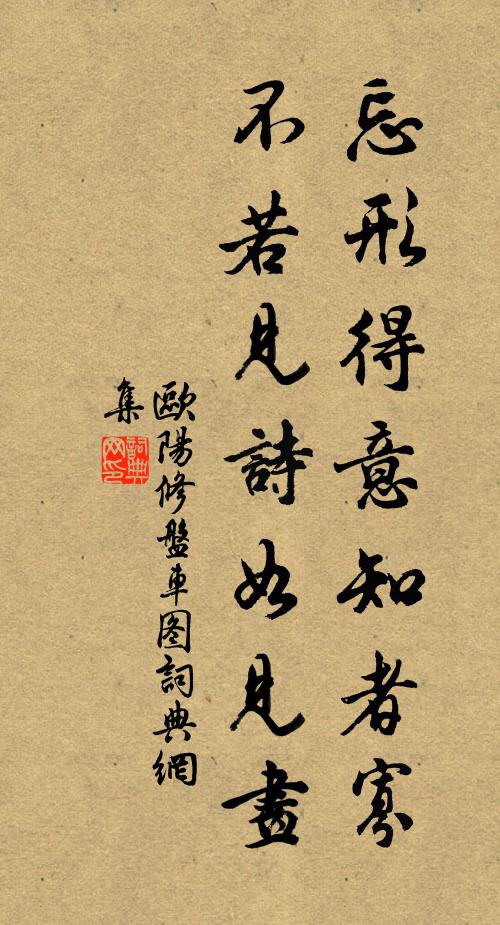 忘形得意知者寡
不若見詩如見畫
歐陽修盤車图詞典網
集
詞典
网印